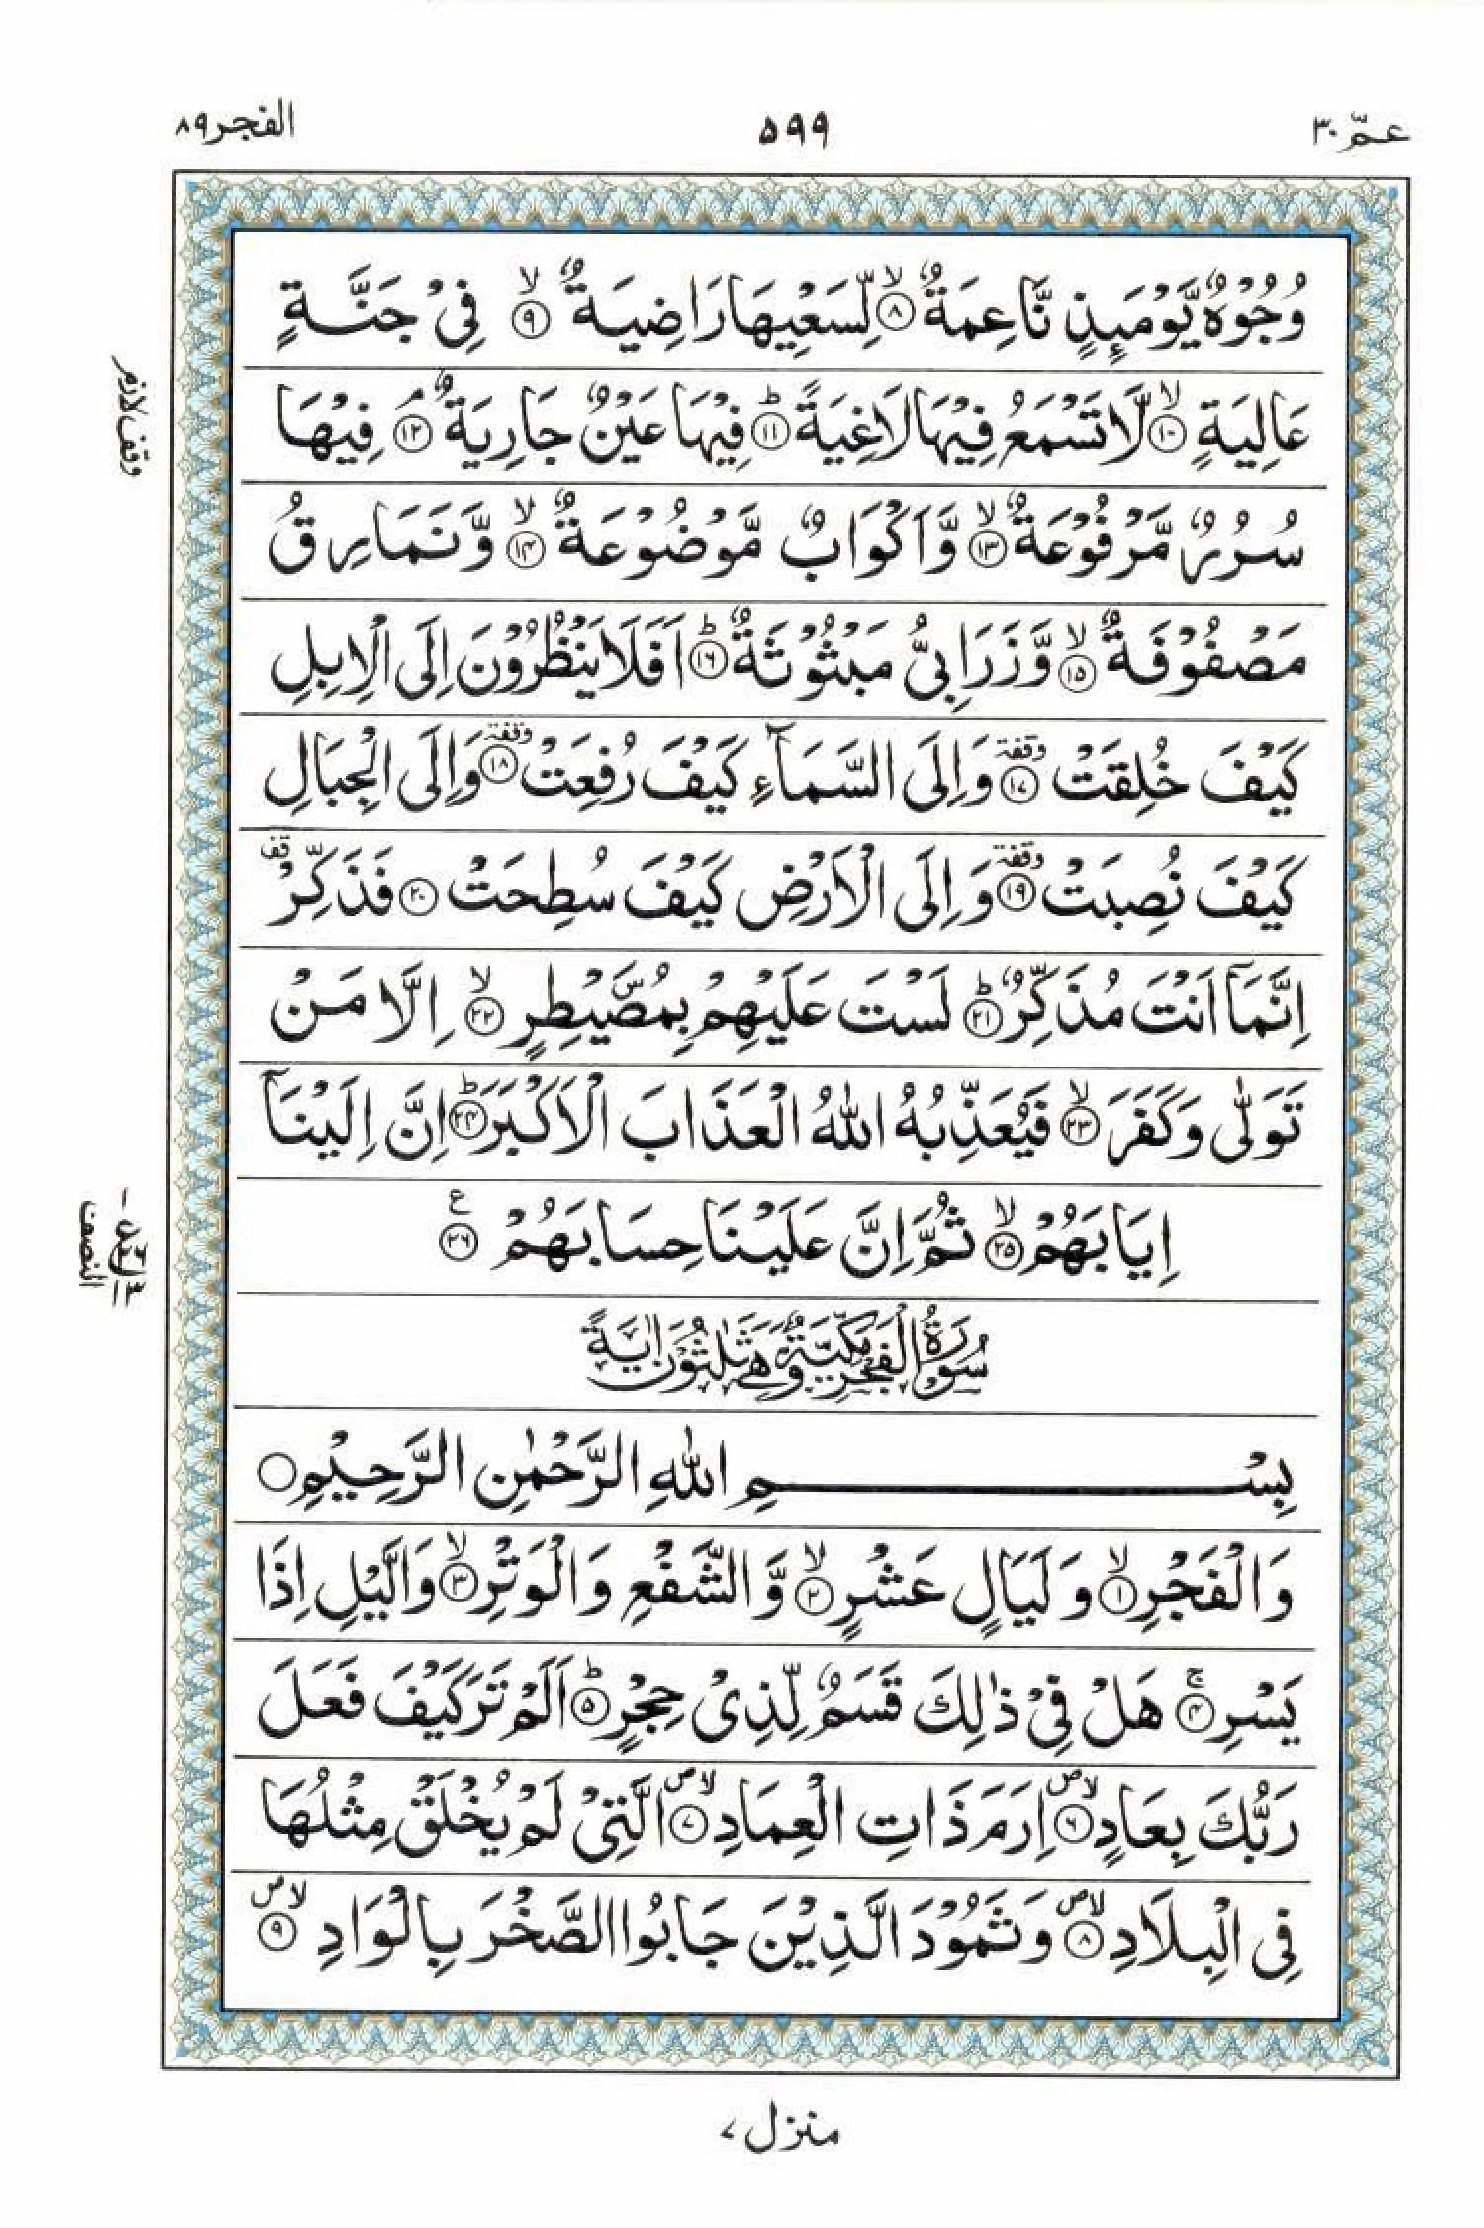 عمّ ٣٠ ٥٩٩ الفجر ٨٩
وُجُوْهٌ يَّوْمَىِٕذٍ نَّاعِمَةٌ ۙ‏﴿۸﴾ لِّسَعْيِهَا رَاضِيَةٌ ۙ‏﴿۹﴾ فِىْ جَنَّةٍ
عَالِيَةٍ ۙ‏﴿۱۰﴾ لَّا تَسْمَعُ فِيْهَا لَاغِيَةً ؕ‏﴿۱۱﴾ فِيْهَا عَيْنٌ جَارِيَةٌ ۘ‏﴿۱۲﴾ فِيْهَا
وقف لازم
سُرُرٌ مَّرْفُوْعَةٌ ۙ‏﴿۱۳﴾ وَّاَكْوَابٌ مَّوْضُوْعَةٌ ۙ‏﴿۱۴﴾ وَّنَمَارِقُ
مَصْفُوْفَةٌ ۙ‏﴿۱۵﴾ وَّزَرَابِىُّ مَبْثُوْثَةٌ ؕ‏﴿۱۶﴾ اَفَلَا يَنْظُرُوْنَ اِلَى الْاِبِلِ
كَيْفَ خُلِقَتْ وقفة ﴿۱۷﴾ وَاِلَى السَّمَآءِ كَيْفَ رُفِعَتْ وقفة ﴿۱۸﴾ وَاِلَى الْجِبَالِ
كَيْفَ نُصِبَتْ وقفة ﴿۱۹﴾ وَاِلَى الْاَرْضِ كَيْفَ سُطِحَتْ ﴿۲۰﴾ فَذَكِّرْ قف
اِنَّمَآ اَنْتَ مُذَكِّرٌ ؕ‏﴿۲۱﴾ لَسْتَ عَلَيْهِمْ بِمُصَۜيْطِرٍ ۙ‏﴿۲۲﴾ اِلَّا مَنْ
تَوَلّٰى وَكَفَرَ ۙ‏﴿۲۳﴾ فَيُعَذِّبُهُ اللّٰهُ الْعَذَابَ الْاَكْبَرَ ؕ‏﴿۲۴﴾ اِنَّ اِلَيْنَآ
اِيَابَهُمْ ۙ‏﴿۲۵﴾ ثُمَّ اِنَّ عَلَيْنَا حِسَابَهُمْ ع ﴿۲۶﴾
النصف
سُوْرَةُ الْفَجْرِ مَكِّيَّةٌ وَّهِىَ ثَلٰثُوْنَ اٰيَةً
بِسْمِ اللّٰهِ الرَّحْمٰنِ الرَّحِيْمِ ○
وَالْفَجْرِ ۙ‏﴿۱﴾ وَلَيَالٍ عَشْرٍ ۙ‏﴿۲﴾ وَّالشَّفْعِ وَالْوَتْرِ ۙ‏﴿۳﴾ وَالَّيْلِ اِذَا
يَسْرِ ۚ‏﴿۴﴾ هَلْ فِىْ ذٰلِكَ قَسَمٌ لِّذِىْ حِجْرٍ ؕ‏﴿۵﴾ اَلَمْ تَرَ كَيْفَ فَعَلَ
رَبُّكَ بِعَادٍ لا ص ﴿۶﴾ اِرَمَ ذَاتِ الْعِمَادِ لا ص ﴿۷﴾ الَّتِىْ لَمْ يُخْلَقْ مِثْلُهَا
فِى الْبِلَادِ لا ص ﴿۸﴾ وَثَمُوْدَ الَّذِيْنَ جَابُوا الصَّخْرَ بِالْوَادِ لا ص ﴿۹﴾
منزل ٧